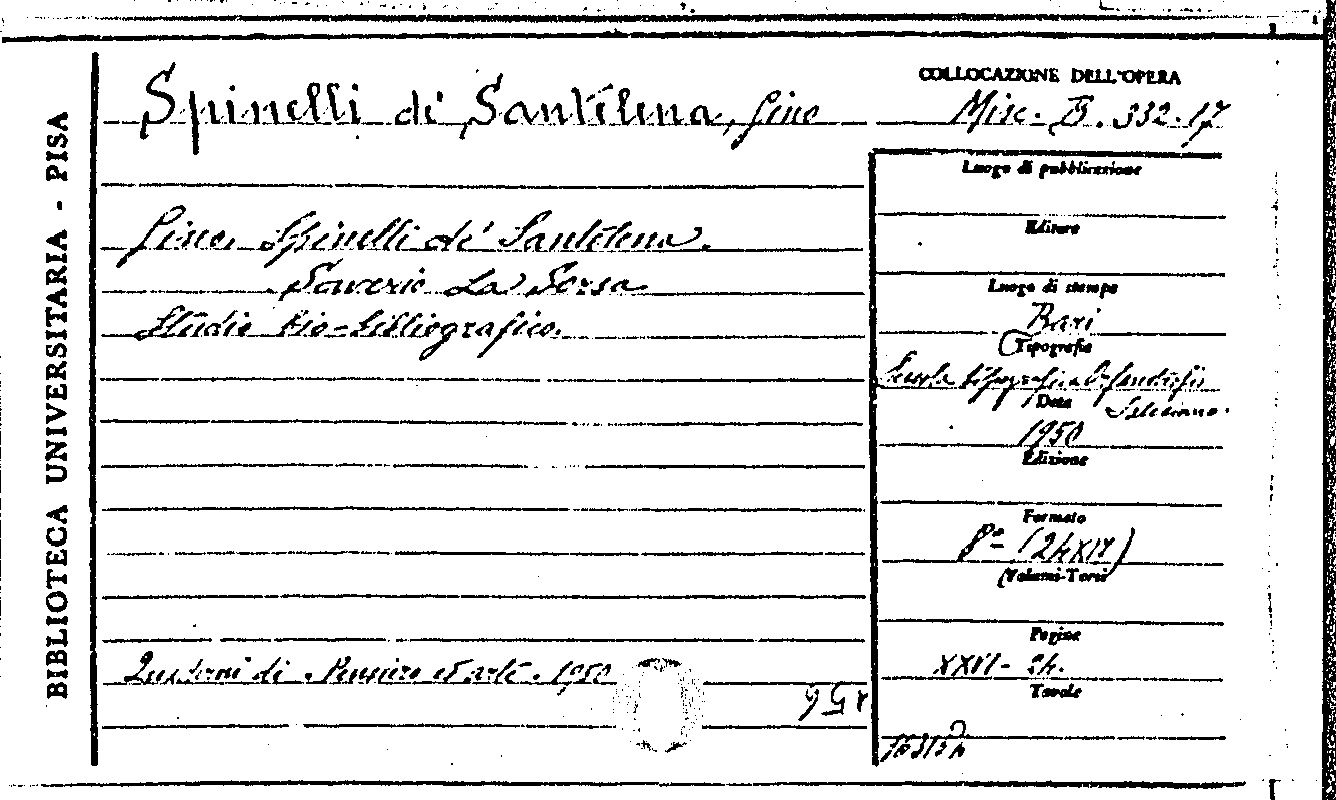 BIBLIOTECA UNIVERSITARIA - PISA
Spinelli de' Santelena, Gino
Gino Spinelli de' Santelena.
Saverio La Sorsa
Studio bio-bibliografico.
Quaderni di Pensiero ed arte. 1950
COLLOCAZIONE DELL'OPERA
Misc. B. 332.17
Luogo di pubblicazione
Editore
Luogo di stampa
Bari
Tipografia
Scuola tipografica Orfanotrofio
Salesiano.
Data
1950
Edizione
Formato
8º (24x17)
Volumi-Tomi
Pagine
XXVI- 24.
Tavole